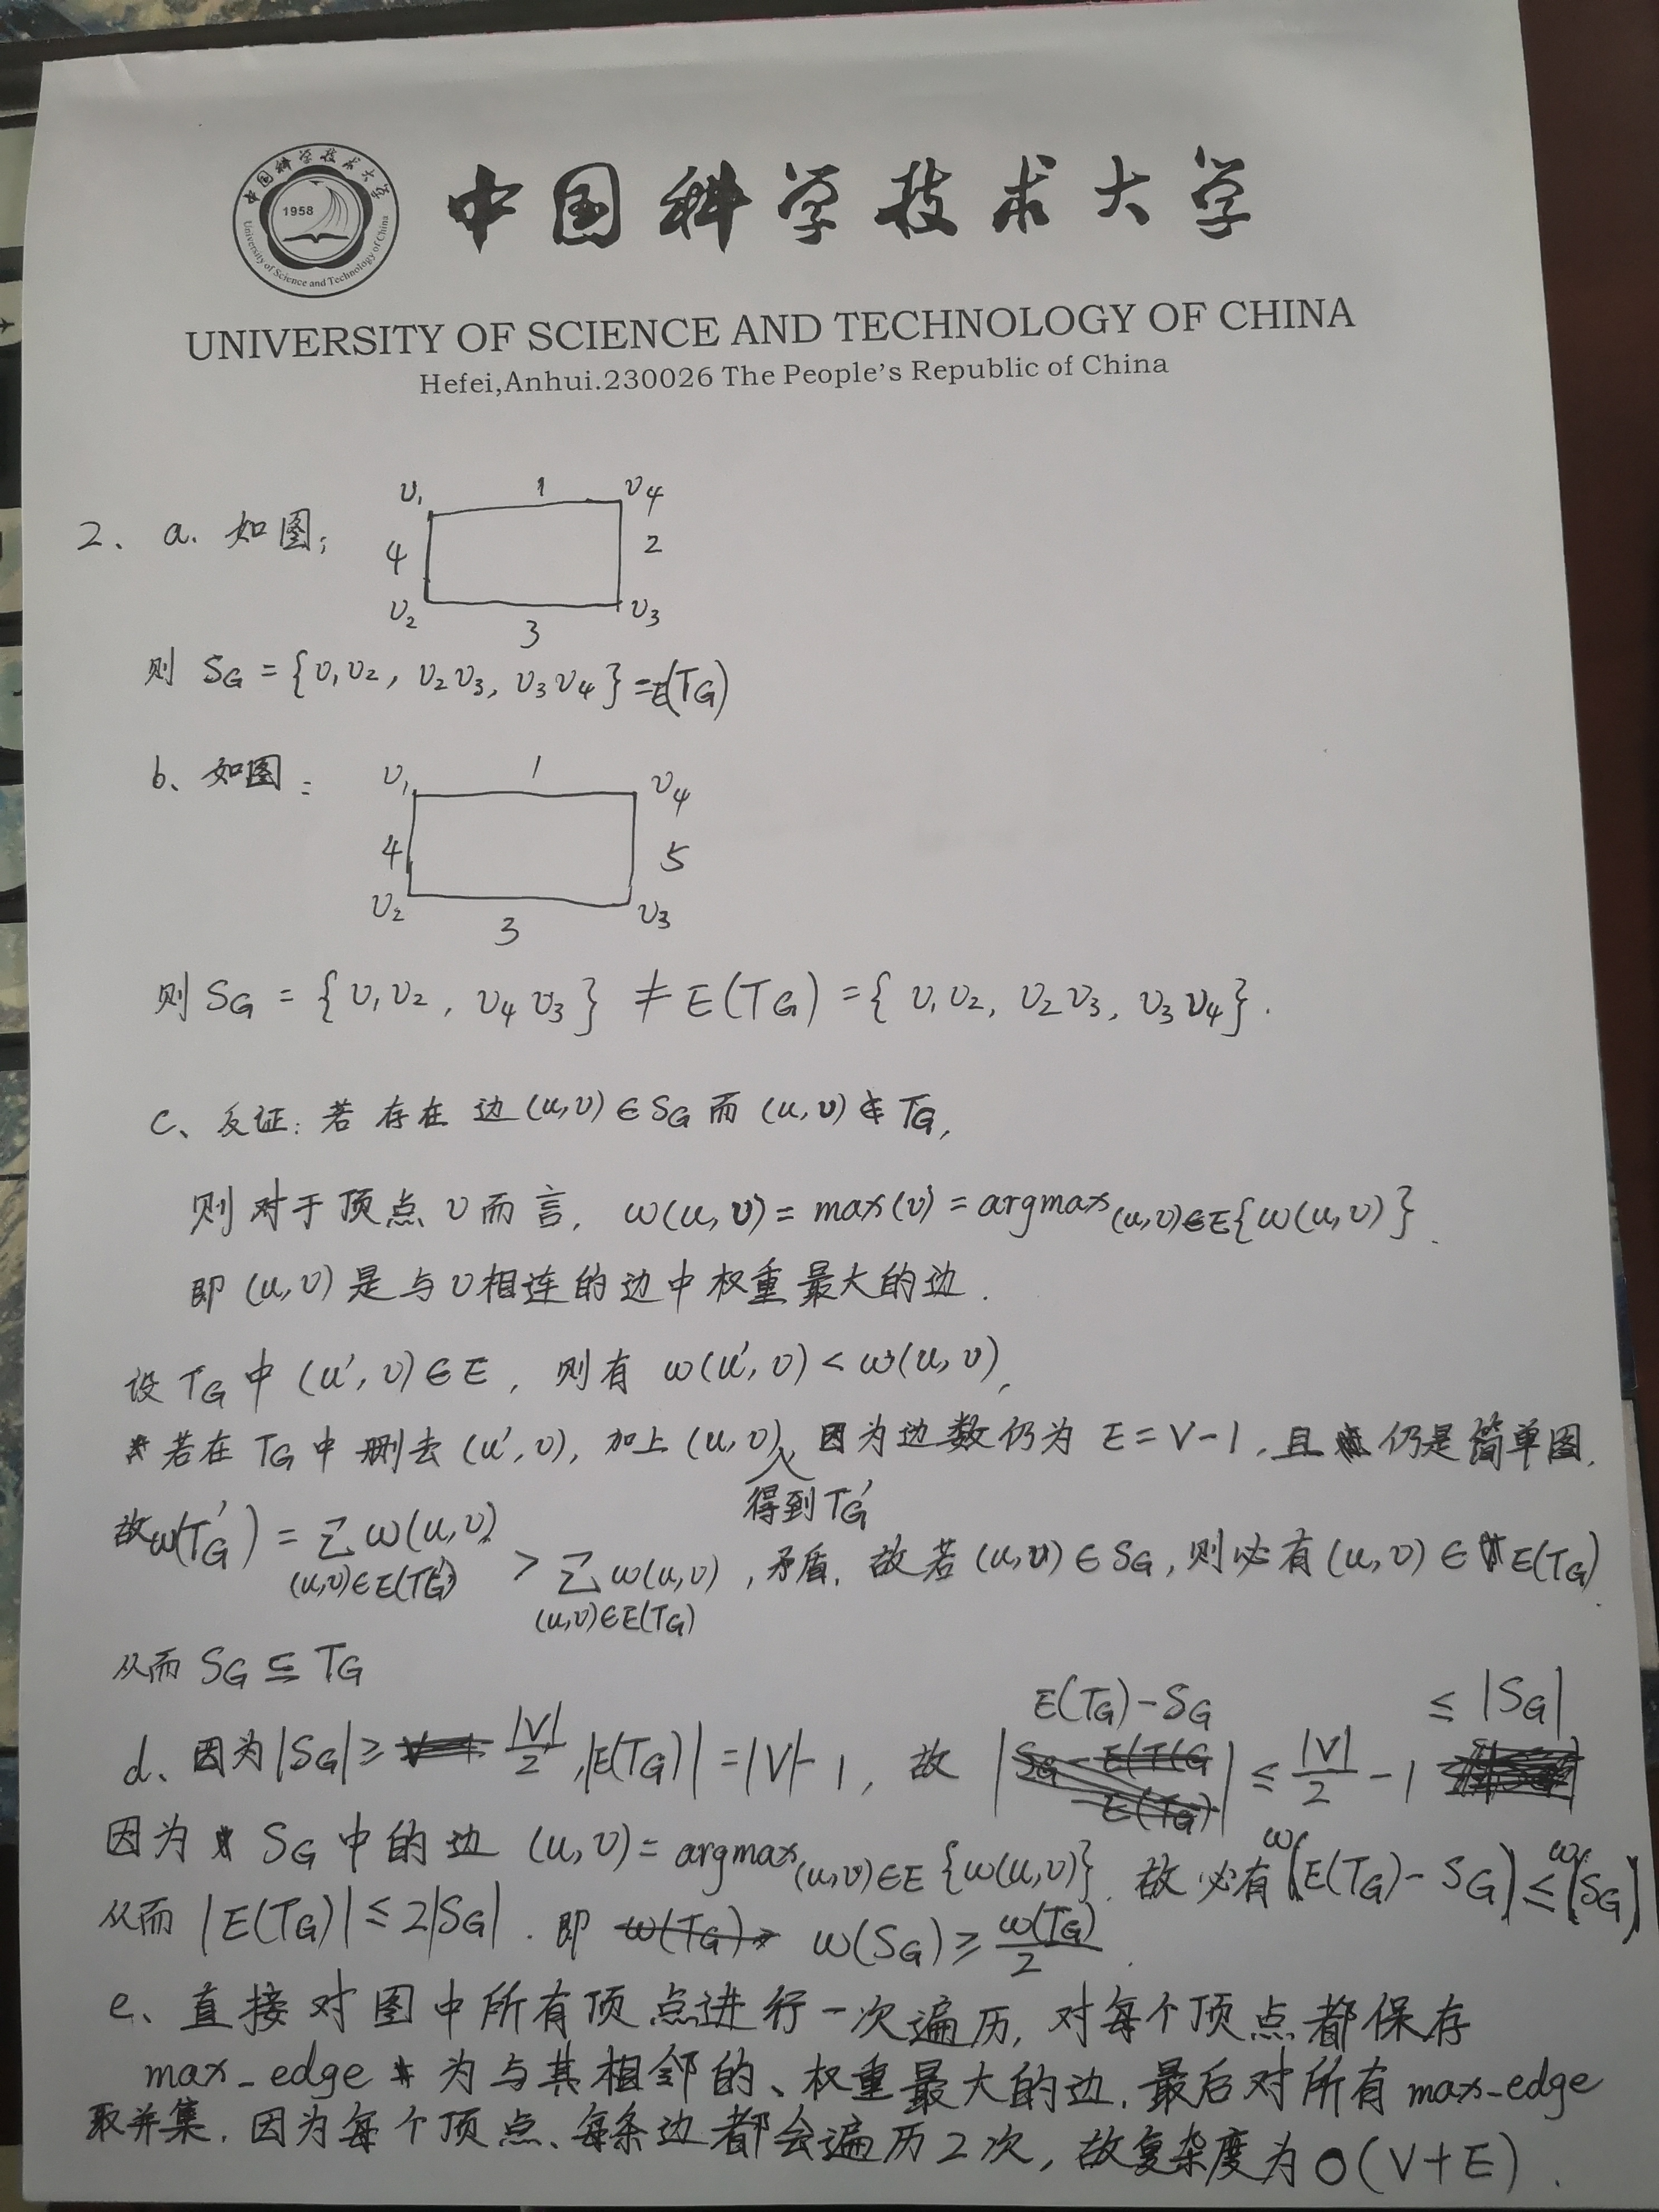 中国科学技术大学
1958
University of Science and Technology of China
中国科学技术大学
UNIVERSITY OF SCIENCE AND TECHNOLOGY OF CHINA
Hefei,Anhui.230026 The People's Republic of China
2、 a. 如图;
υ₁ 1 υ₄
4 2
υ₂ 3 υ₃
则 S_G = {υ₁υ₂, υ₂υ₃, υ₃υ₄} = E(T_G)
b、如图:
υ₁ 1 υ₄
4 5
υ₂ 3 υ₃
则 S_G = {υ₁υ₂, υ₄υ₃} ≠ E(T_G) = {υ₁υ₂, υ₂υ₃, υ₃υ₄}.
c、反证: 若存在边(u,υ)∈S_G 而 (u,υ)∉T_G,
则对于顶点υ而言, ω(u,υ) = max(υ) = argmax_{(u,υ)∈E}{ω(u,υ)}.
即 (u,υ) 是与υ相连的边中权重最大的边.
设 T_G 中 (u′,υ)∈E, 则有 ω(u′,υ) < ω(u,υ),
若在 T_G 中删去 (u′,υ), 加上 (u,υ), 得到 T_G′ 因为边数仍为 E=V-1, 且仍是简单图,
故 ω(T_G′) = Σ_{(u,υ)∈E(T_G′)} ω(u,υ) > Σ_{(u,υ)∈E(T_G)} ω(u,υ), 矛盾, 故若 (u,υ)∈S_G, 则必有 (u,υ)∈E(T_G).
从而 S_G ⊆ T_G
d、因为 |S_G| ≥ |V|/2, |E(T_G)| = |V|-1, 故 |E(T_G)-S_G| ≤ |V|/2 - 1 ≤ |S_G|
因为 S_G 中的边 (u,υ) = argmax_{(u,υ)∈E}{ω(u,υ)}. 故必有 ω(E(T_G)-S_G) ≤ ω(S_G)
从而 |E(T_G)| ≤ 2|S_G|. 即 ω(S_G) ≥ ω(T_G)/2.
e、直接对图中所有顶点进行一次遍历, 对每个顶点都保存
max_edge 为与其相邻的、权重最大的边. 最后对所有 max_edge
取并集. 因为每个顶点、每条边都会遍历2次, 故复杂度为 O(V+E).